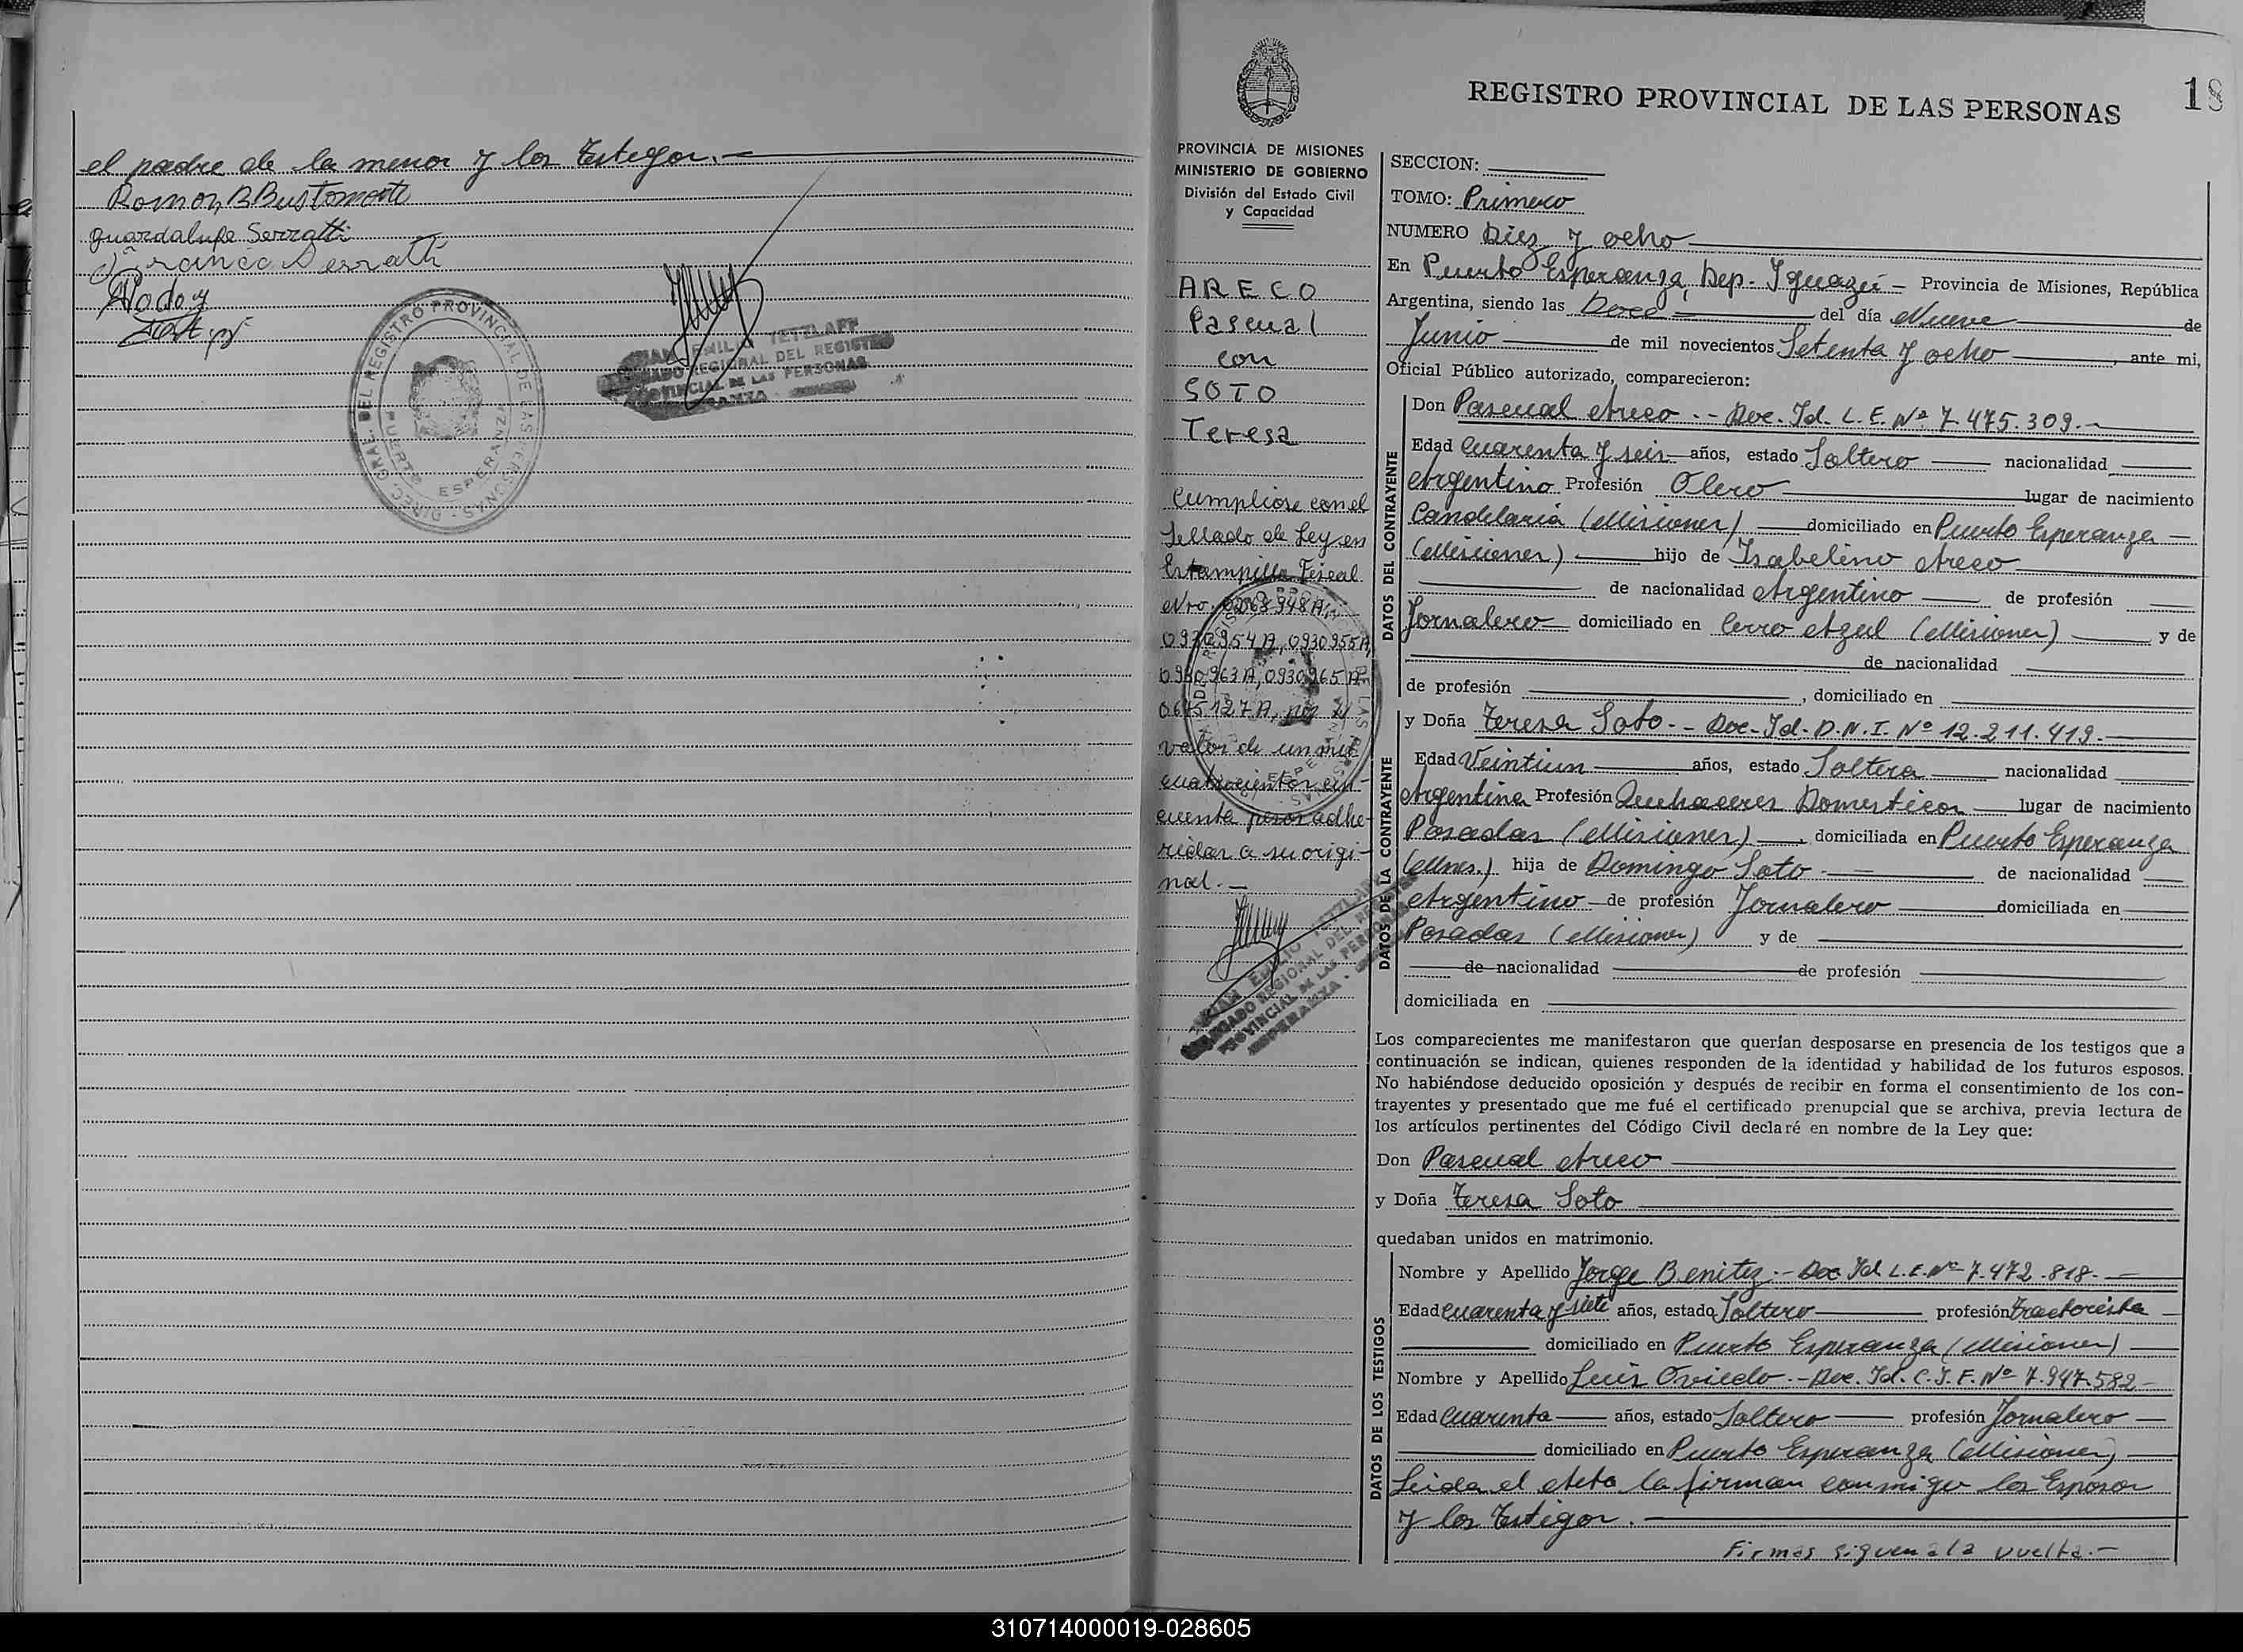 el padre de la menor y los Testigos.—
Ramon B Bustamante
guardalupe Serratti
Franco Serratti
Godoy
DIREC. GRAL. DEL REGISTRO PROVINCIAL DE LAS PERSONAS
PUERTO ESPERANZA
EMILIO TETZLAFF
DELEGADO REGIONAL DEL REGISTRO
PROVINCIAL DE LAS PERSONAS
ESPERANZA - MISIONES
PROVINCIA DE MISIONES
MINISTERIO DE GOBIERNO
División del Estado Civil
y Capacidad
ARECO
Pascual
con
SOTO
Teresa
Cumpliose con el
Sellado de Ley en
Estampilla Fiscal
Nro. 0063948A,
0930954A, 0930955A,
0930963A, 0930965A
0675127A, por el
valor de un mil
cuatrocientos cin-
cuenta pesos adhe-
ridas a su origi-
nal.—
EMILIO TETZLAFF
DELEGADO REGIONAL DEL REGISTRO
PROVINCIAL DE LAS PERSONAS
ESPERANZA -
REGISTRO PROVINCIAL DE LAS PERSONAS
18
SECCION:
TOMO: Primero
NUMERO Diez y ocho
En Puerto Esperanza, Dep. Iguazú — Provincia de Misiones, República
Argentina, siendo las Doce del día Nueve de
Junio de mil novecientos Setenta y ocho, ante mi,
Oficial Público autorizado, comparecieron:
DATOS DEL CONTRAYENTE
Don Pascual Areco.-- Doc. Id. L.E. Nº 7.475.309.—
Edad Cuarenta y seis años, estado Soltero nacionalidad
Argentino Profesión Olero lugar de nacimiento
Candelaria (Misiones) domiciliado en Puerto Esperanza —
(Misiones) hijo de Isabelino Areco
de nacionalidad Argentino de profesión
Jornalero domiciliado en Cerro Azul (Misiones) y de
de nacionalidad
de profesión , domiciliado en
DATOS DE LA CONTRAYENTE
y Doña Teresa Soto.-- Doc. Id. D.N.I. Nº 12.211.419.—
Edad Veintiun años, estado Soltera nacionalidad
Argentina Profesión Quehaceres Domesticos lugar de nacimiento
Posadas (Misiones), domiciliada en Puerto Esperanza
(Mnes.) hija de Domingo Soto.— de nacionalidad
Argentino de profesión Jornalero domiciliada en
Posadas (Misiones) y de
de nacionalidad de profesión
domiciliada en
Los comparecientes me manifestaron que querían desposarse en presencia de los testigos que a
continuación se indican, quienes responden de la identidad y habilidad de los futuros esposos.
No habiéndose deducido oposición y después de recibir en forma el consentimiento de los con-
trayentes y presentado que me fué el certificado prenupcial que se archiva, previa lectura de
los artículos pertinentes del Código Civil declaré en nombre de la Ley que:
Don Pascual Areco
y Doña Teresa Soto
quedaban unidos en matrimonio.
DATOS DE LOS TESTIGOS
Nombre y Apellido Jorge Benitez.-- Doc Id L.E. Nº 7.472.818.—
Edad Cuarenta y siete años, estado Soltero profesión Tractorista
domiciliado en Puerto Esperanza (Misiones)
Nombre y Apellido Luis Oviedo.-- Doc. Id. C.I.F. Nº 7.947.582—
Edad Cuarenta años, estado Soltero profesión Jornalero
domiciliado en Puerto Esperanza (Misiones)
Leida el Acta la firman conmigo los Esposos
y los Testigos.—
Firmas siguen a la vuelta.—
310714000019-028605